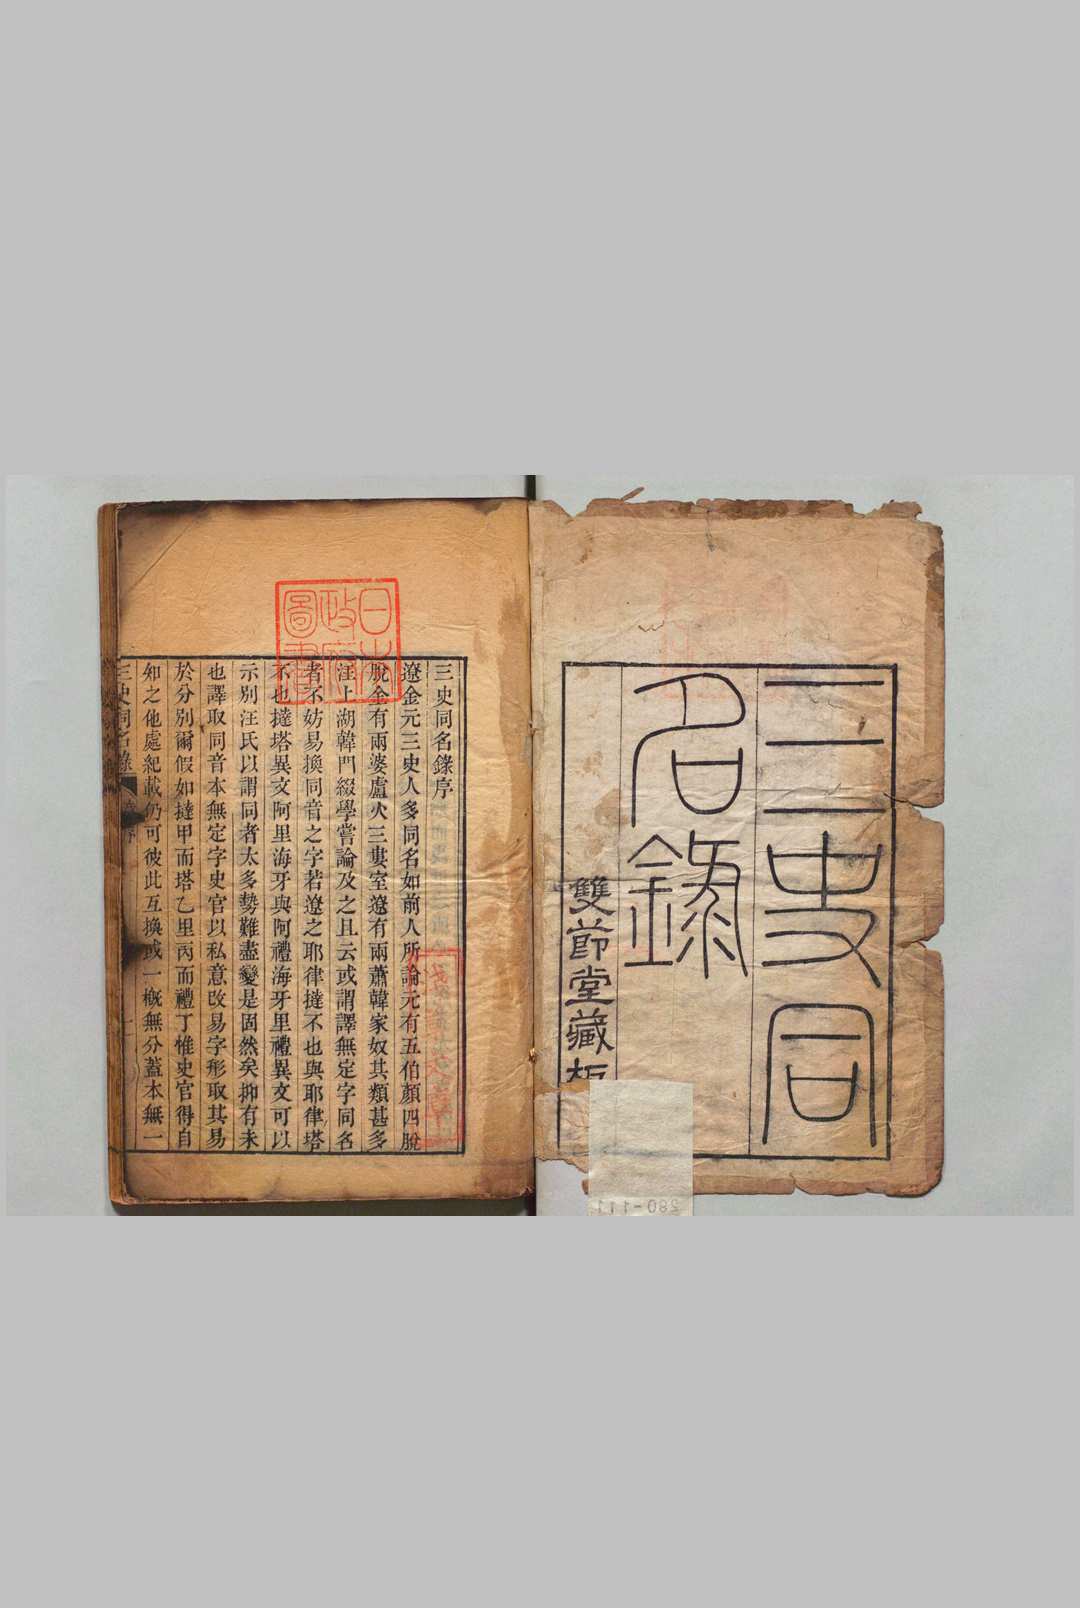 三史同
名錄
雙節堂藏板
三史同名錄序
遼金元三史人多同名如前人所論元有五伯顏四脫
脫金有兩婆盧火三婁室遼有兩蕭韓家奴其類甚多
汪上湖韓門綴學嘗論及之且云或謂譯無定字同名
者不妨易換同音之字若遼之耶律撻不也與耶律塔
不也撻塔異文阿里海牙與阿禮海牙里禮異文可以
示別汪氏以謂同者太多勢難盡變是固然矣抑有未
也譯取同音本無定字史官以私意改易字形取其易
於分別爾假如撻甲而塔乙里丙而禮丁惟史官得自
知之他處紀載仍可彼此互換或一槪無分蓋本無一
三史同名錄 序 一
日本
政府
圖書
280-111